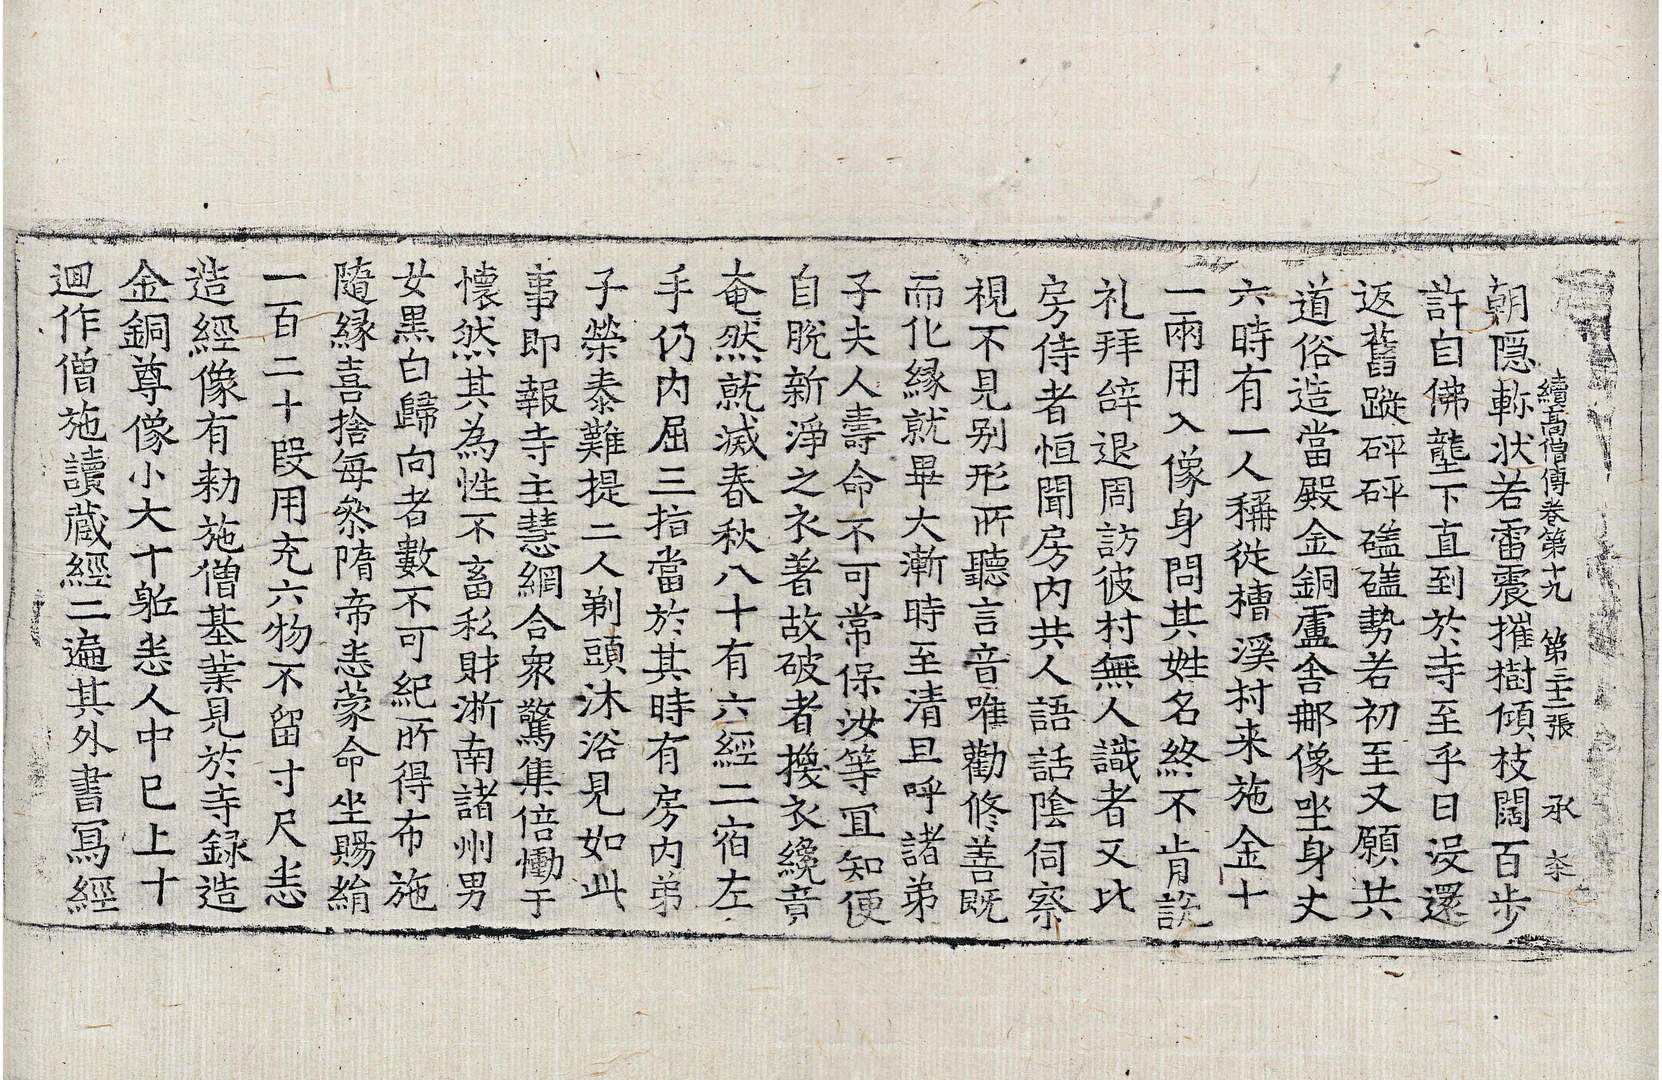 續高僧傳卷第十九 第 張 承
朝隱軫狀若雷震摧樹傾枝闊百步
許自佛壟下直到於寺至乎日没還
返舊蹤砰砰磕磕勢若初至又願共
道俗造當殿金銅盧舍那像坐身丈
六時有一人稱從槽溪村来施金十
一兩用入像身問其姓名終不肯說
礼拜辝退周訪彼村無人識者又比
房侍者恒聞房内共人語話陰伺察
視不見别形所聽言音唯勸修善既
而化縁就畢大漸時至清旦呼諸弟
子夫人壽命不可常保汝等冝知便
自脫新淨之衣著故破者換衣纔竟
奄然就滅春秋八十有六經二宿左
手仍内屈三指當於其時有房内弟
子榮泰難提二人剃頭沐浴見如此
事即報寺主慧綱合衆驚集倍慟于
懷然其為性不畜私財浙南諸州男
女黑白歸向者數不可紀所得布施
隨縁喜捨每叅隋帝悉蒙命坐賜絹
一百二十段用充六物不留寸尺悉
造經像有勑施僧基業見於寺録造
金銅尊像小大十軀悉人中已上十
迴作僧施讀藏經二遍其外書寫經